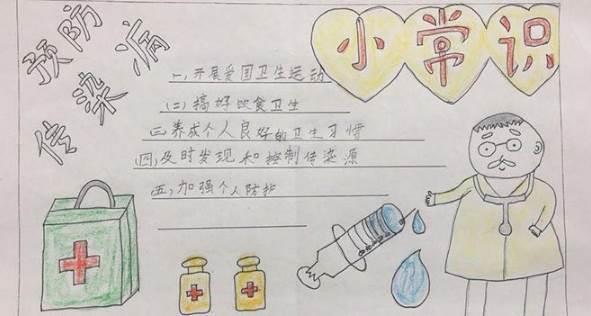 预防
传染病
小常识
一、开展爱国卫生运动
(二)搞好饮食卫生
三养成个人良好的卫生习惯
四,及时发现和控制传染源
五,加强个人防护